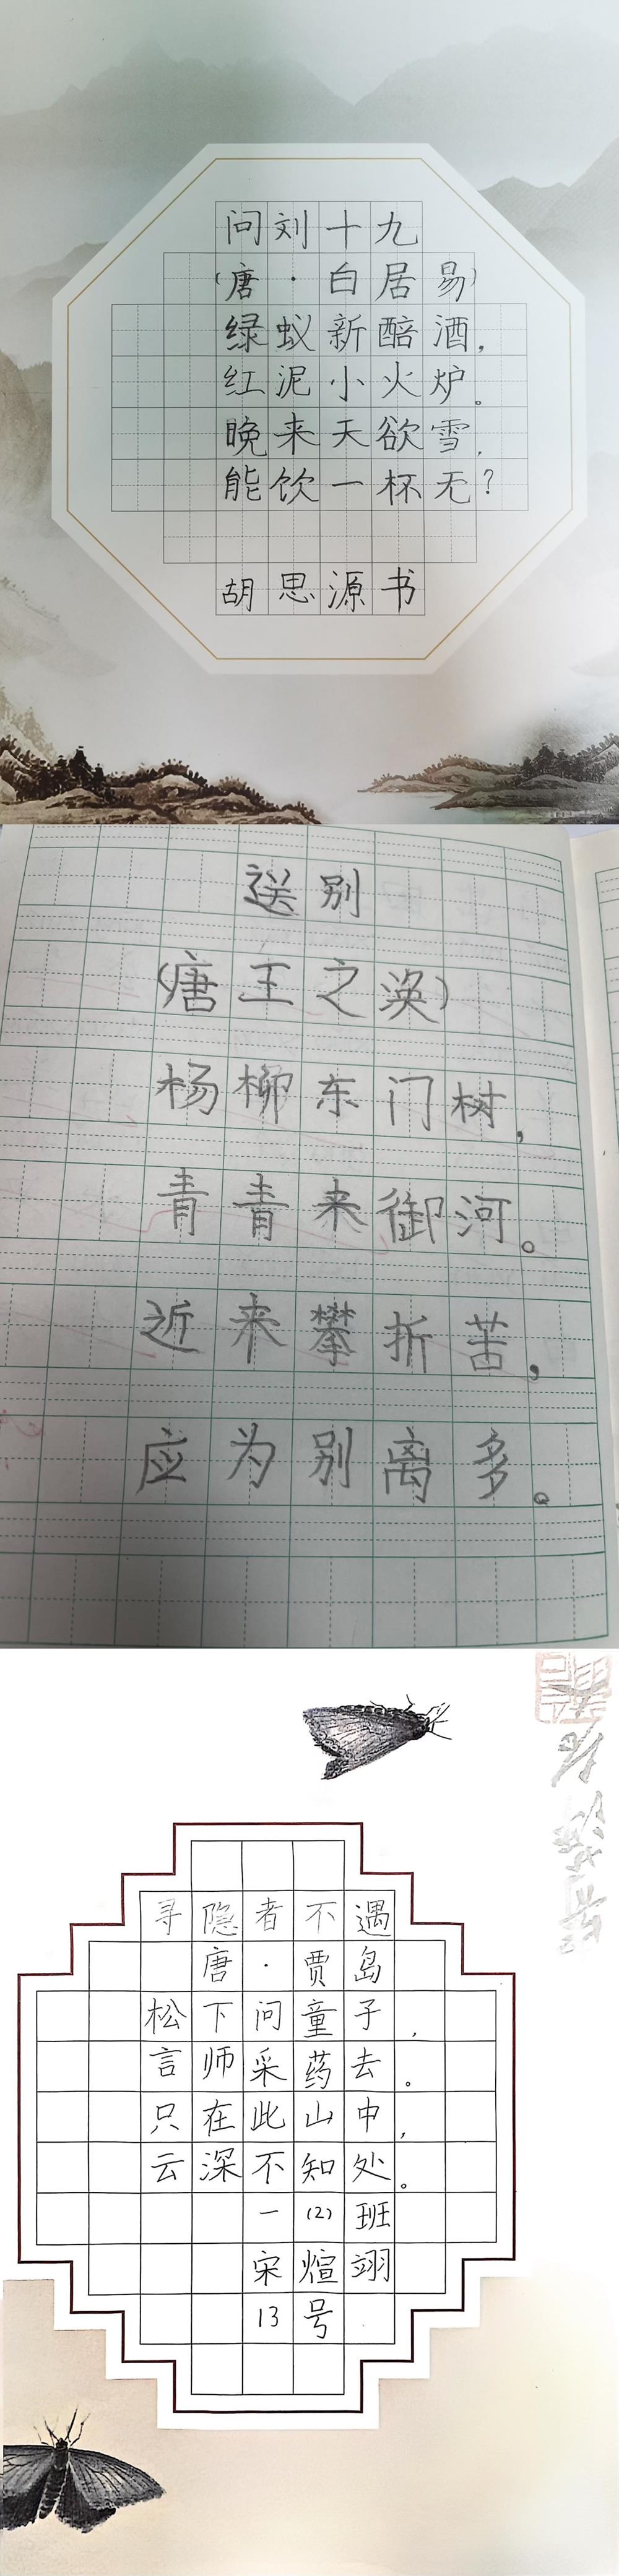 问刘十九
(唐·白居易)
绿蚁新醅酒,
红泥小火炉。
晚来天欲雪,
能饮一杯无?
胡思源书
送别
(唐王之涣)
杨柳东门树,
青青来御河。
近来攀折苦,
应为别离多。
寻隐者不遇
唐·贾岛
松下问童子,
言师采药去。
只在此山中,
云深不知处。
一(2)班
宋煊翊
13号